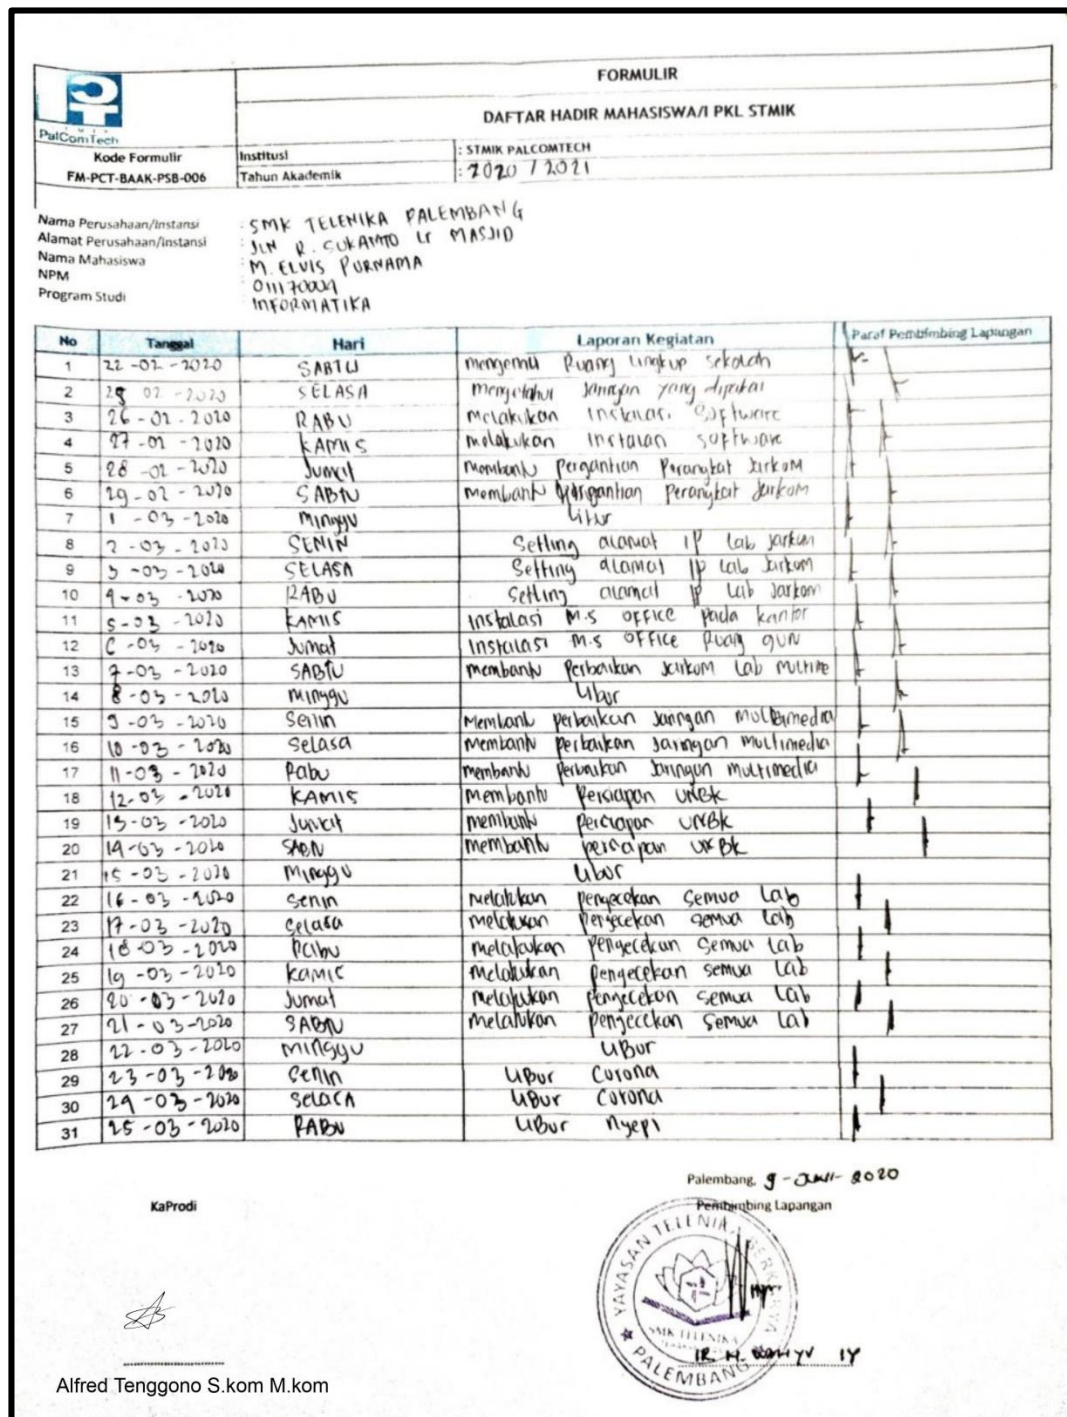 FORMULIR
DAFTAR HADIR MAHASISWA/I PKL STMIK
PalComTech
Kode Formulir
FM-PCT-BAAK-PSB-006
Institusi : STMIK PALCOMTECH
Tahun Akademik : 2020 / 2021
Nama Perusahaan/Instansi : SMK TELENIKA PALEMBANG
Alamat Perusahaan/Instansi : JLN R. SUKAMTO Lr MASJID
Nama Mahasiswa : M. ELVIS PURNAMA
NPM :
Program Studi : INFORMATIKA
No Tanggal Hari Laporan Kegiatan Paraf Pembimbing Lapangan
1 22 -02 -2020 SABTU Ruang Lingkup sekolah
2 02 -2020 SELASA mengetahui Jaringan yang dipakai
3 26 -02 - 2020 RABU melakukan Instalasi Software
4 27 -02 - 2020 KAMIS melakukan Instalan software
5 28 -02 - 2020 Jumat Membantu Pergantian Perangkat JarkoM
6 29 -02 - 2020 SABTU Membantu Pergantian Perangkat Jarkom
7 1 -03 -2020 Minggu Libur
8 2 -03 - 2020 SENIN Setting alamat IP Lab Jarkom
9 3 -03 -2020 SELASA Setting alamat IP Lab Jarkom
10 4 -03 -2020 RABU Setting alamat IP Lab Jarkom
11 5 -03 -2020 KAMIS Instalasi M.s OFFICE pada kantor
12 6 -03 -2020 Jumat Instalasi M.s OFFICE Ruang guru
13 7 -03 -2020 SABTU membantu Perbaikan Jarkom Lab multime
14 8 -03 -2020 minggu Libur
15 9 -03 -2020 Senin Membantu perbaikan Jaringan Multimedia
16 10 -03 -2020 Selasa Membantu perbaikan Jaringan Multimedia
17 11 -03 - 2020 Rabu membantu Perbaikan Jaringan multimedia
18 12-03 -2020 KAMIS Membantu Persiapan UNBK
19 13 -03 -2020 Jumat membantu Persiapan UNBK
20 14 -03 -2020 SABTU membantu persiapan UNBK
21 15 -03 -2020 Minggu Libur
22 16 -03 -2020 Senin Melakukan Pengecekan Semua Lab
23 17 -03 -2020 Selasa melakukan Pengecekan semua Lab
24 18 -03 -2020 Rabu melakukan Pengecekan Semua Lab
25 19 -03 -2020 Kamis Melakukan Pengecekan semua Lab
26 20 -03 -2020 Jumat Melakukan Pengecekan Semua Lab
27 21 -03 -2020 SABTU Melakukan Pengecekan Semua Lab
28 22 -03 -2020 Minggu LiBur
29 23 -03 -2020 Senin LiBur Corona
30 24 -03 -2020 Selasa LiBur Corona
31 25 -03 -2020 RABU LiBur Nyepi
Palembang, 9 - - 2020
KaProdi Pembimbing Lapangan
YAYASAN TELENIKA BERKARYA
SMK TELENIKA
PALEMBANG
IR. M. WAHYU
Alfred Tenggono S.kom M.kom